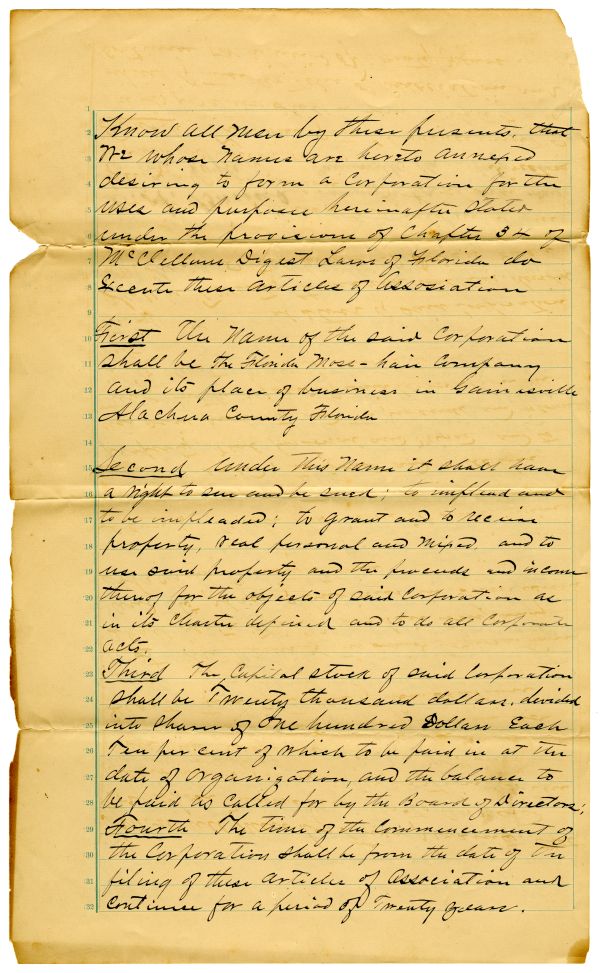 Know all men by these presents, that
We whose Names are hereto annexed
desiring to form a Corporation for the
uses and purpose hereinafter stated
under the provisions of Chapter 34 of
McClellans Digest Laws of Florida do
Execute these Articles of Association
First The Name of the said Corporation
shall be the Florida Moss-hair Company
and its place of business in Gainesville
Alachua County Florida
Second Under this Name it shall have
a right to sue and be sued; to implead and
to be impleaded; to grant and to receive
property, real personal and mixed, and to
use said property and the proceeds and income
thereof for the objects of said Corporation as
in its Charter defined and to do all Corporate
acts.
Third The Capital stock of said Corporation
shall be Twenty thousand dollars, divided
into shares of One hundred Dollars Each
Ten per cent of which to be paid in at the
date of organization, and the balance to
be paid as called for by the Board of Directors;
Fourth The time of the Commencement of
the Corporation shall be from the date of the
filing of these Articles of Association and
Continue for a period of Twenty years.